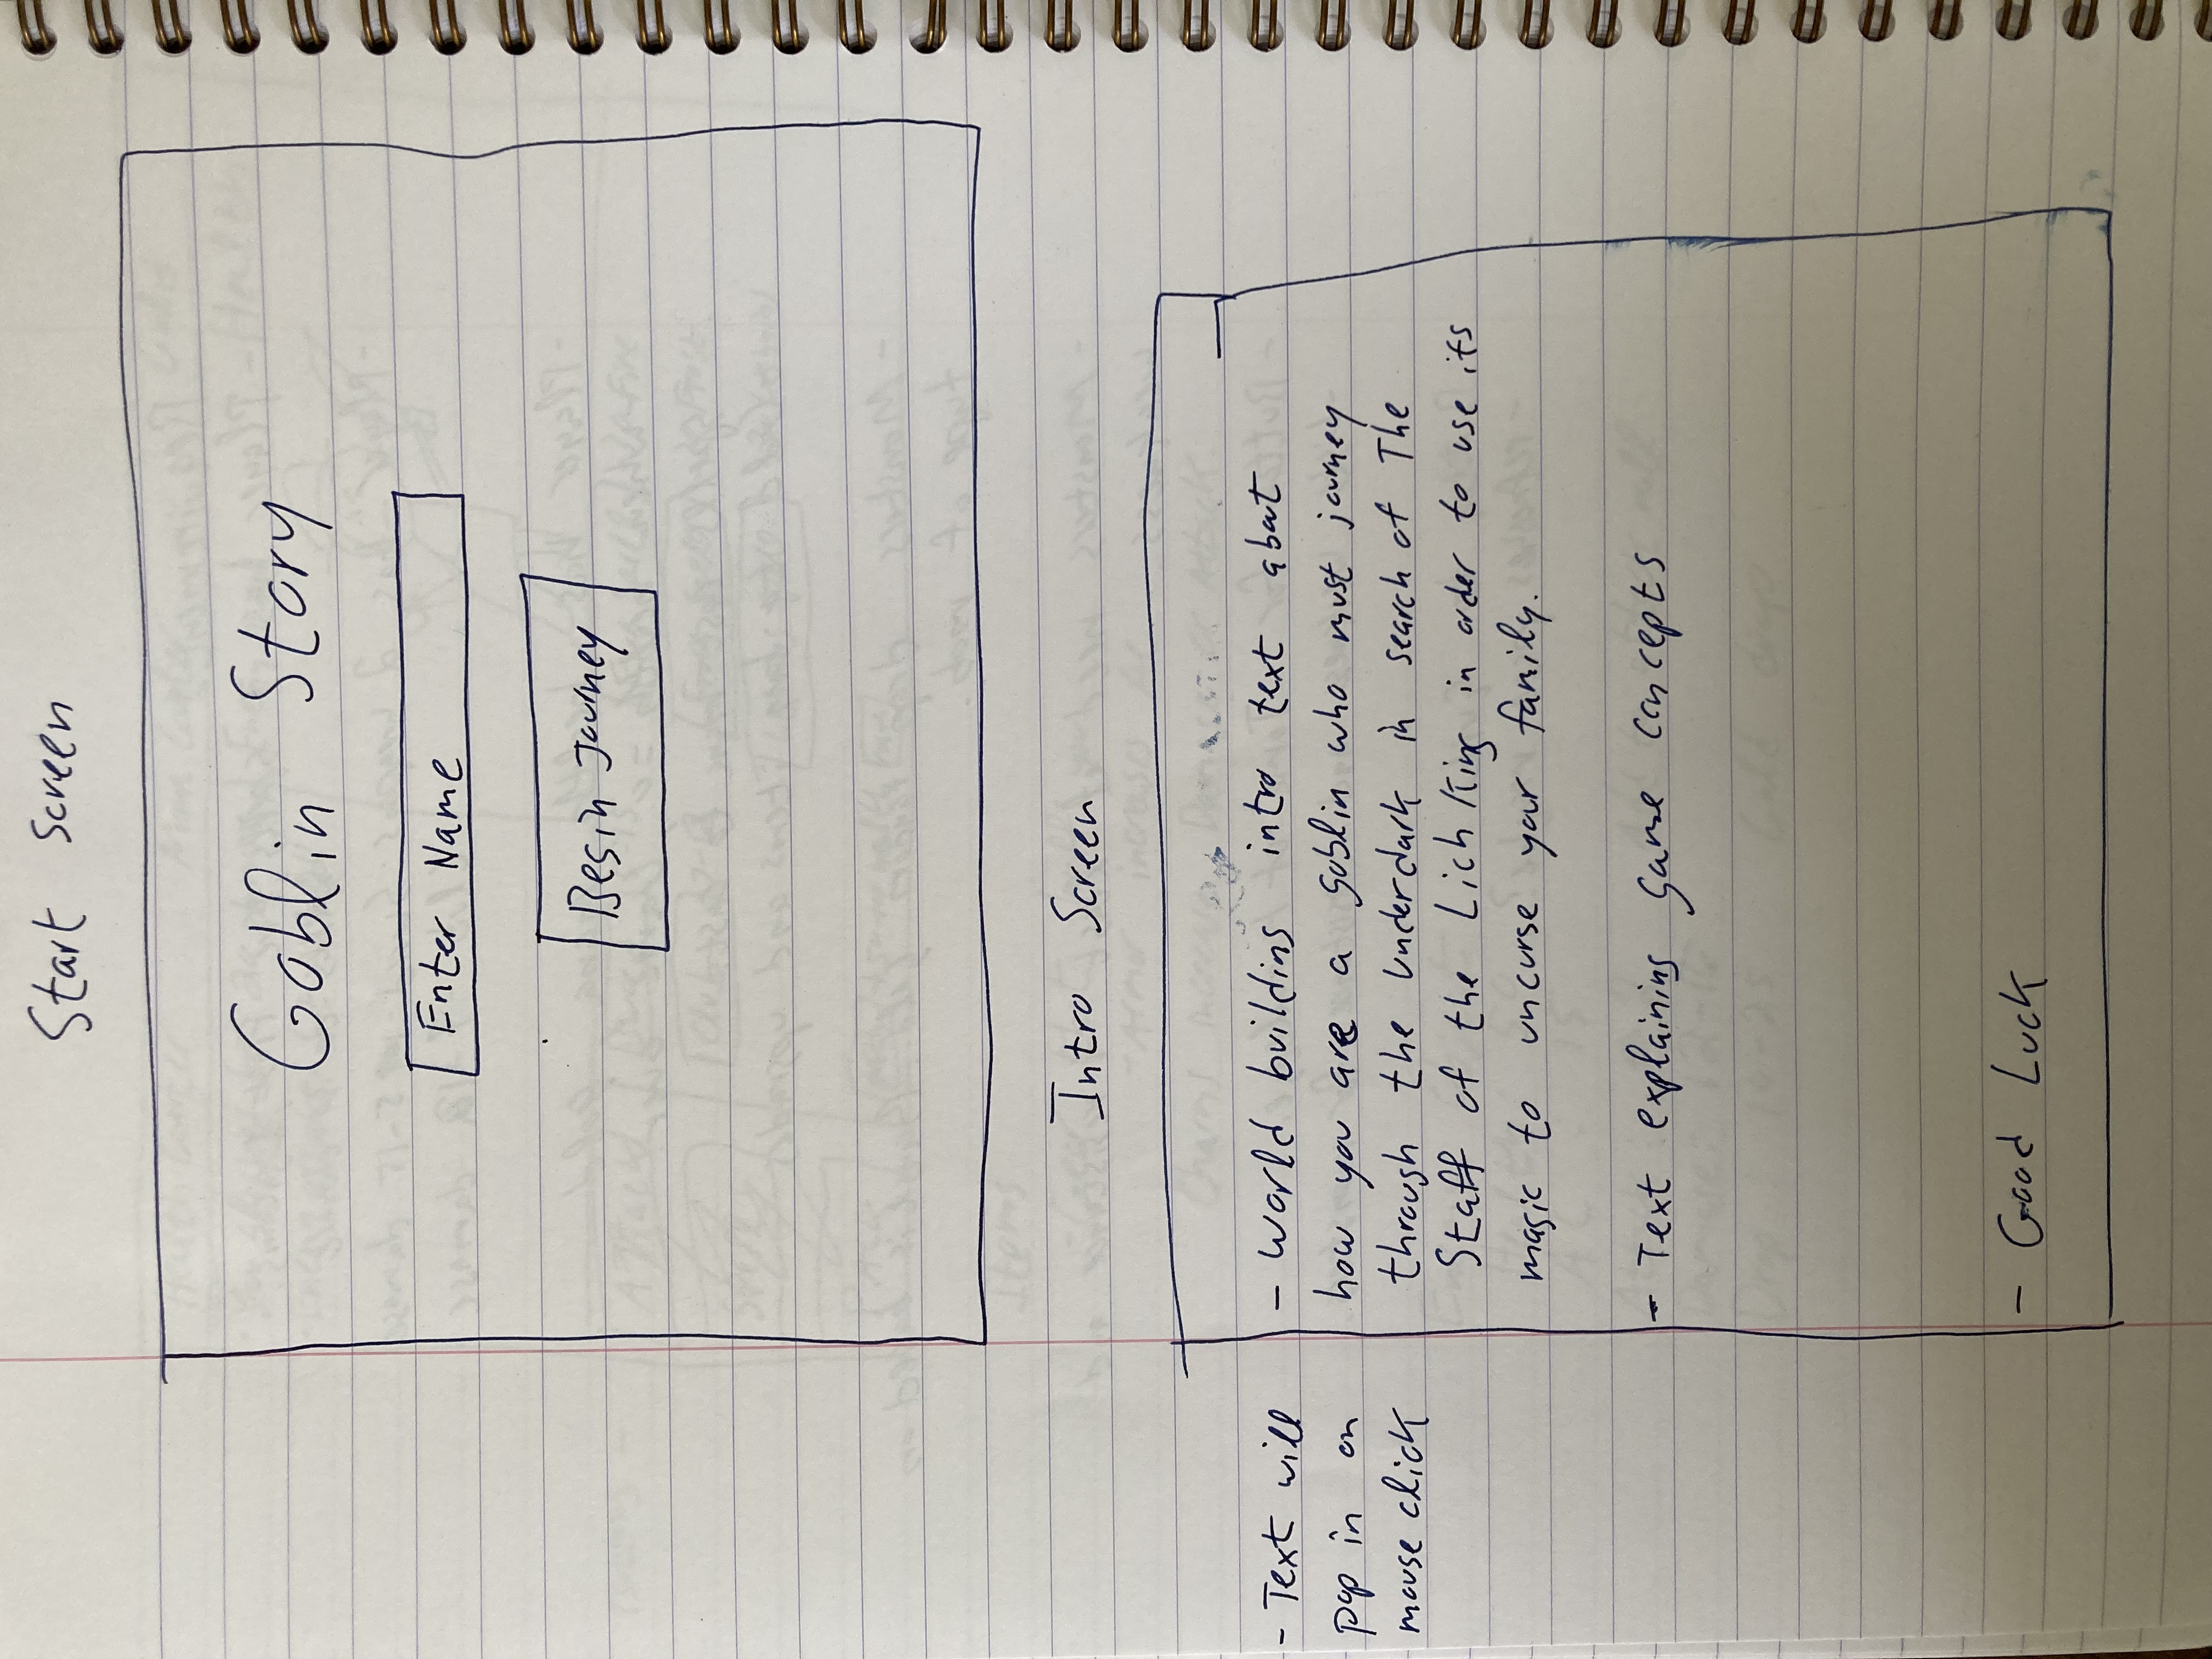 Start Screen
Goblin Story
Enter Name
Begin Journey
Intro Screen
- Text will
pop in on
mouse click
- World building intro text about
how you are a goblin who must journey
through the Underdark in search of The
Staff of the Lich King in order to use its
magic to uncurse your family.
- Text explaining game concepts
- Good Luck